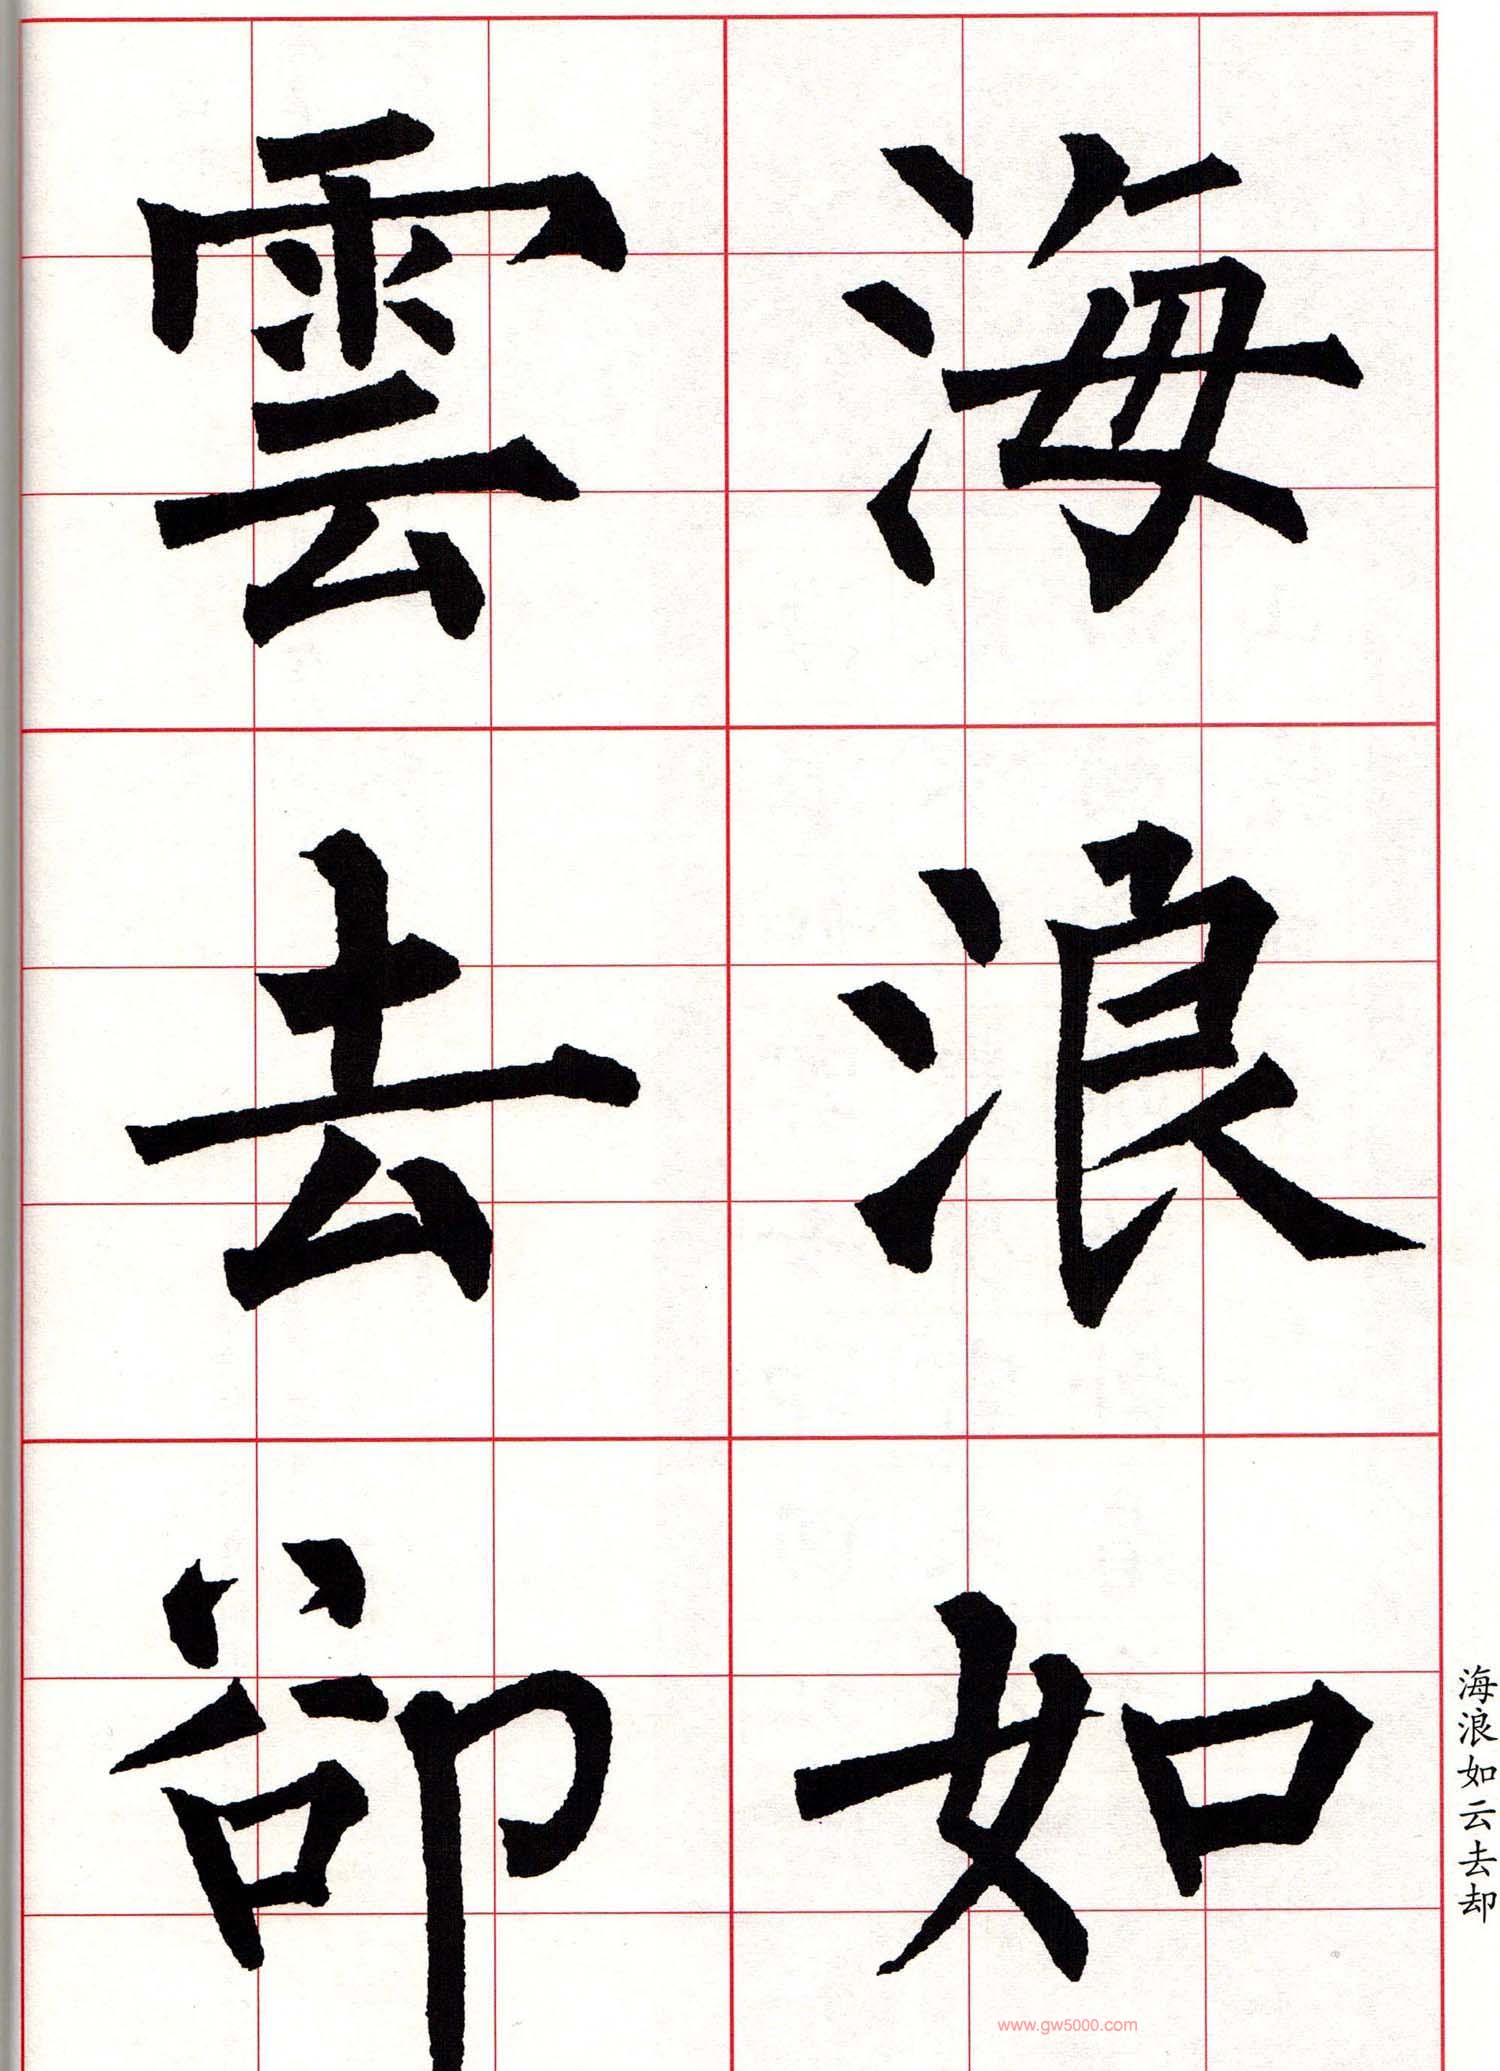 海浪如
雲去卻
海浪如云去却
www.gw5000.com